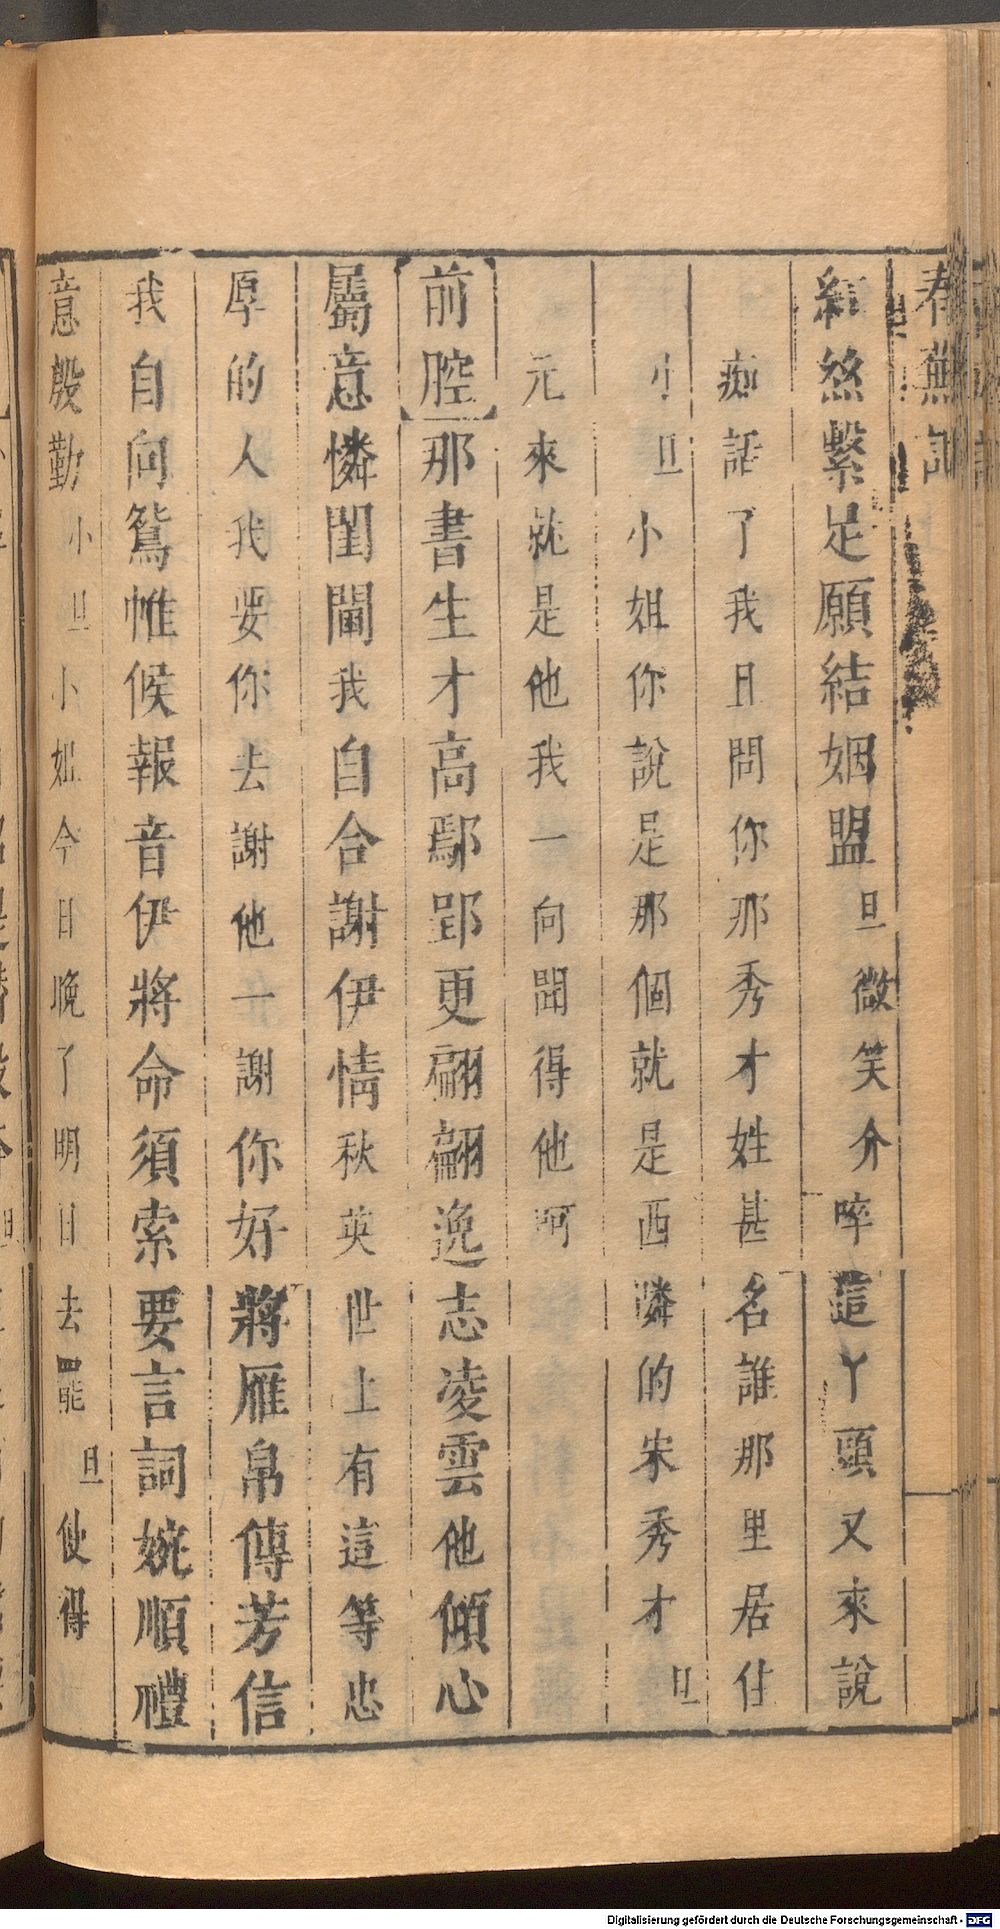 春蕪記
紅絲繫足願結姻盟旦微笑介啐這丫頭又來說
痴話了我且問你那秀才姓甚名誰那里居住
小旦小姐你說是那個就是西隣的宋秀才旦
元來就是他我一向聞得他呵
前腔那書生才高鄢郢更翩翩逸志凌雲他傾心
屬意憐閨閫我自合謝伊情秋英世上有這等忠
厚的人我要你去謝他一謝你好將雁帛傳芳信
我自向鴛帷候報音伊將命須索要言詞婉順禮
意殷勤小旦小姐今日晚了明日去罷旦使得
Digitalisierung gefördert durch die Deutsche Forschungsgemeinschaft - DFG